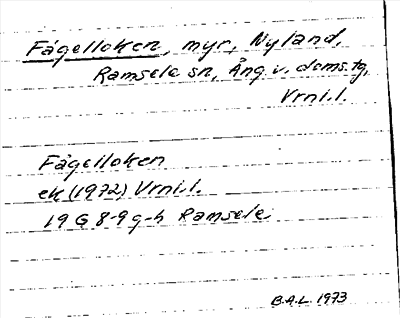 Fågelloken, myr, Nyland,
Ramsele sn, Ång. v. doms.tg,
Vrni.l.
Fågelloken
ek (1972) Vrni.l.
19 G 8-9 g-h Ramsele
B.A.L. 1973